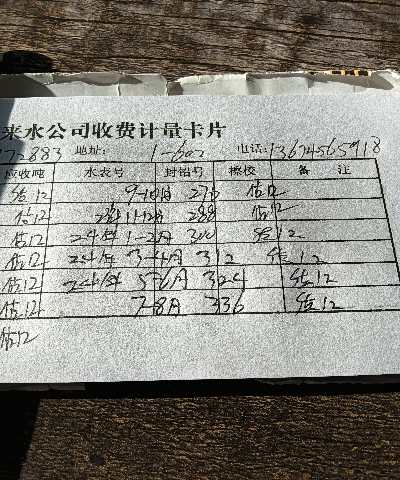 来水公司收费计量卡片
772883 地址: 1-602 电话: 13674565918
应收吨 水表号 封铅号 检校 备注
估12 9-10月 276 估12
估12 11-12月 288 估12
估12 24年 1-2月 300 估12
估12 24年 3-4月 312 估12
估12 24年 5-6月 324 估12
估12 7-8月 336 估12
估12